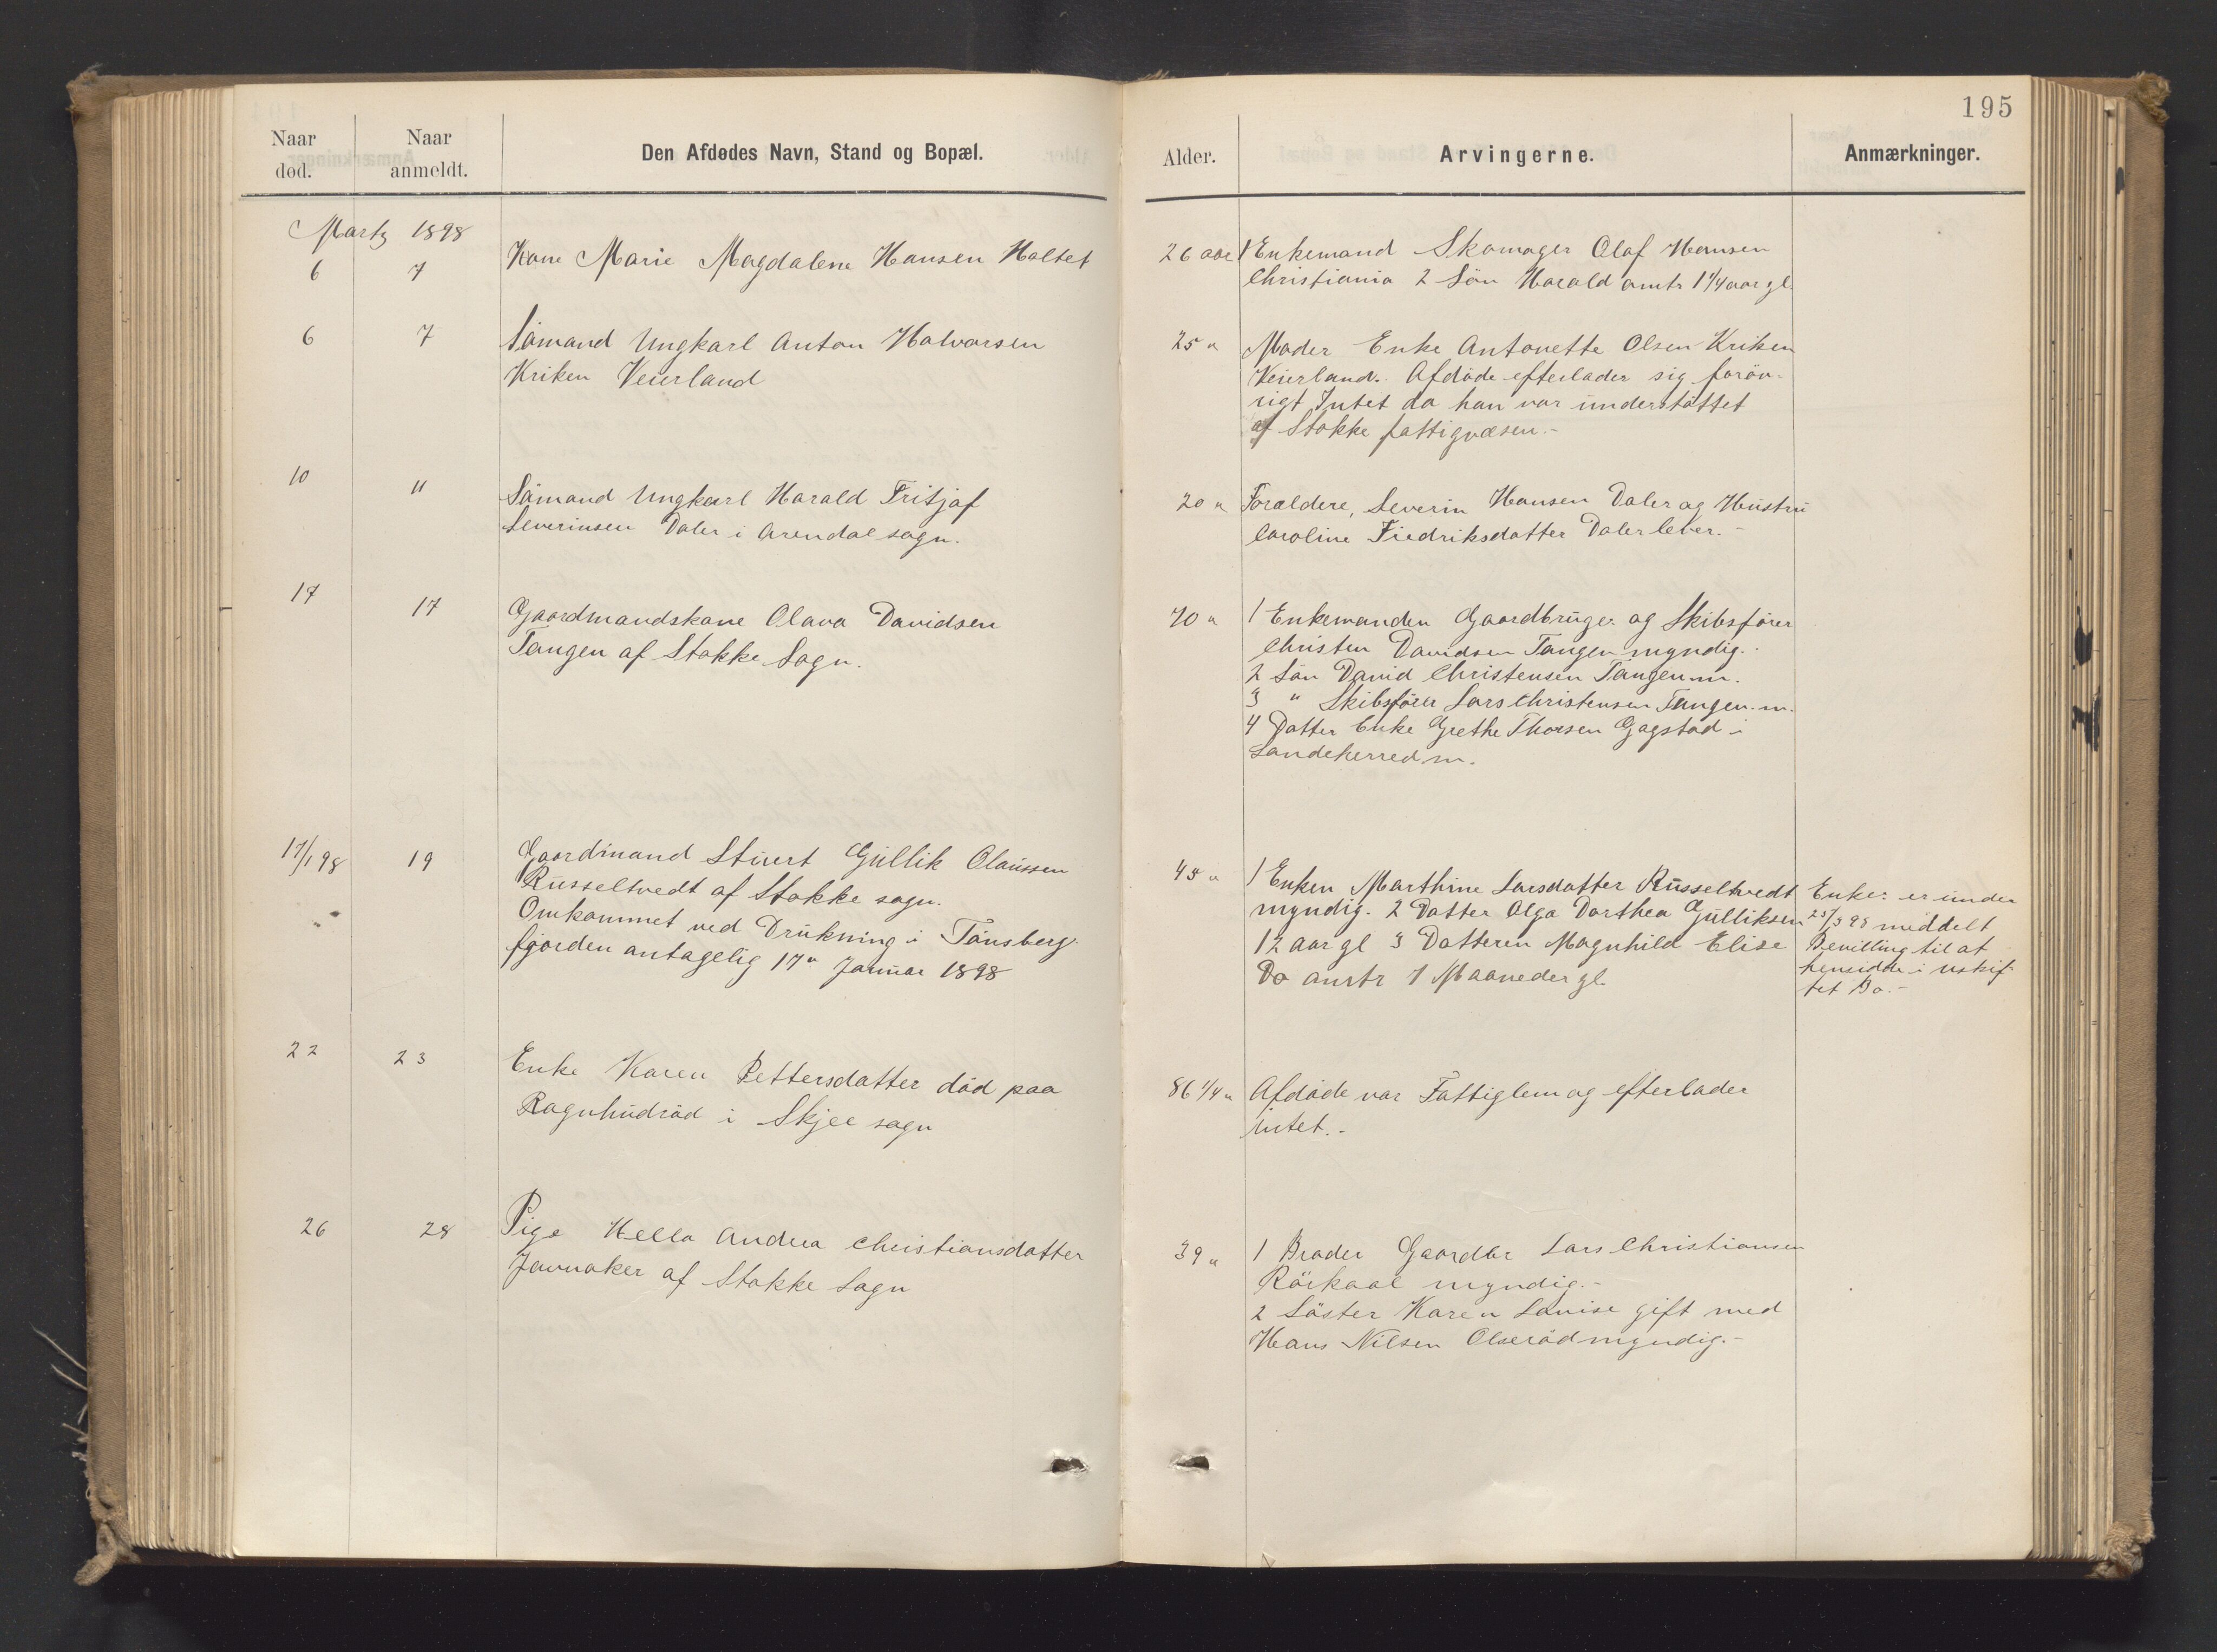 195
Naar død.
Naar anmeldt.
Den Afdødes Navn, Stand og Bopæl.
Alder.
Arvingerne.
Anmærkninger.
Marts 1898
6 7 Kone Marie Magdalene Hansen Holtet
26 aar 1 Enkemand Skomager Olaf Hansen
Christiania 2 Sön Harald amtr 1 1/4 aar gl.
6 7 Sömand Ungkarl Anton Halvorsen
Kriken Veierland
25 " Moder Enke Antonette Olsen Kriken
Veierland. Afdöde efterlader sig foröv-
rigt Intet da han var understöttet
af Stokke fattigvæsen.-
10 11 Sömand Ungkarl Harald Fritjof
Severinsen Daler i Arendal sogn.
20 " Forældere, Severin Hansen Daler og Hustru
Caroline Fredriksdatter Daler lever.-
17 17 Gaardmandskone Olava Davidsen
Tangen af Stokke Sogn.
70 " 1 Enkemanden Gaardbruger og Skibsförer
Christen Davidsen Tangen myndig.
2 Sön David Christensen Tangen m.
3 " Skibsförer Lars Christensen Tangen m.
4 Datter Enke Grethe Thorsen Gogstad i
Sandeherred m.
17/1 98 19 Gaardmand Stuert Gullik Olaussen
Russeltvedt af Stokke sogn.
Omkommet ved Drukning i Tönsberg
fjorden antagelig 17" Januar 1898
45 " 1 Enken Marthine Larsdatter Russeltvedt
myndig. 2 Datter Olga Dorthea Gulliksen
12 aar gl 3 Datteren Magnhild Elise
Do amtr 7 Maaneder gl.
Enken er under
25/3 98 meddelt
Bevilling til at
hensidde i uskif
tet Bo.-
22 23 Enke Karen Pettersdatter död paa
Ragnhudröd i Skjee sogn
86 1/4 " Afdöde var Fattiglem og efterlader
intet.-
26 28 Pige Hella Andrea Christiansdatter
Javnaker af Stokke Sogn
39 " 1 Broder Gaardbr Lars Christiansen
Rörkoal myndig.-
2 Söster Karen Lovise gift med
Hans Nilsen Olseröd myndig.-